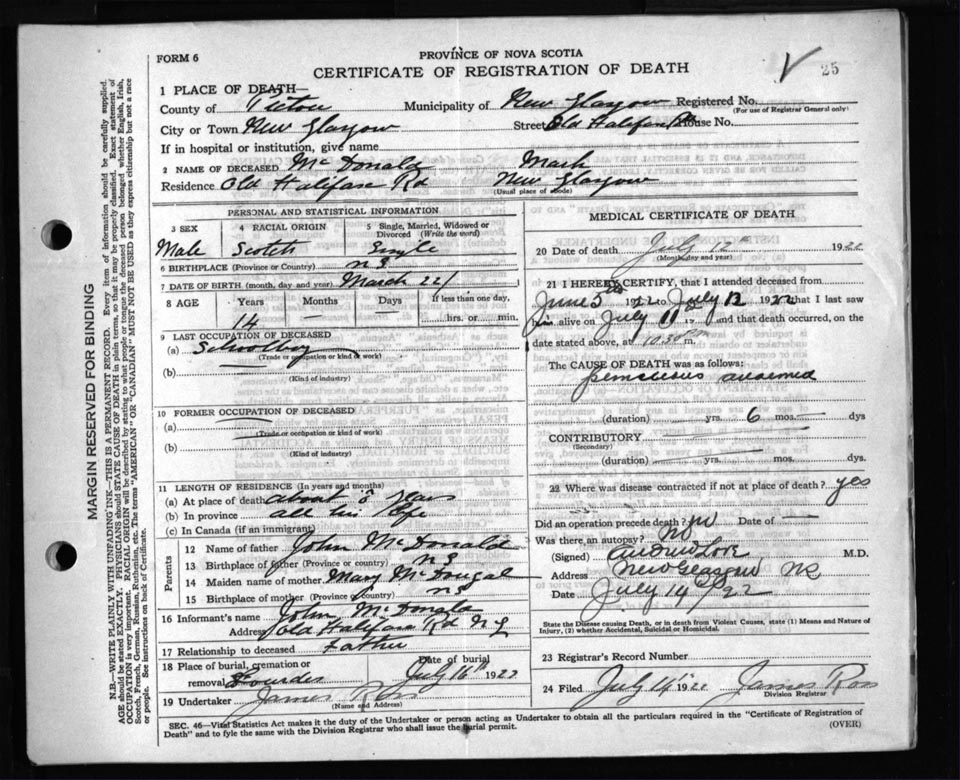 FORM 6
PROVINCE OF NOVA SCOTIA
CERTIFICATE OF REGISTRATION OF DEATH
25
1 PLACE OF DEATH—
County of Pictou Municipality of New Glasgow Registered No.
(For use of Registrar General only)
City or Town New Glasgow Street Old Halifax Rd House No.
If in hospital or institution, give name
2 NAME OF DECEASED McDonald Mark
Residence Old Halifax Rd New Glasgow
(Usual place of abode)
PERSONAL AND STATISTICAL INFORMATION
3 SEX 4 RACIAL ORIGIN 5 Single, Married, Widowed or Divorced (Write the word)
Male Scotch Single
6 BIRTHPLACE (Province or Country) N S
7 DATE OF BIRTH (month, day and year) March 22/
8 AGE Years Months Days If less than one day,
14 — — hrs. or min.
9 LAST OCCUPATION OF DECEASED
(a) Schoolboy
(Trade or occupation or kind of work)
(b)
(Kind of industry)
10 FORMER OCCUPATION OF DECEASED
(a)
(Trade or occupation or kind of work)
(b)
(Kind of industry)
11 LENGTH OF RESIDENCE (In years and months)
(a) At place of death about 8 years
(b) In province all his life
(c) In Canada (if an immigrant)
Parents
12 Name of father John McDonald
13 Birthplace of father (Province or country) N S
14 Maiden name of mother Mary McDougal
15 Birthplace of mother (Province or country) N S
16 Informant's name John McDonald
Address Old Halifax Rd N G
17 Relationship to deceased Father
18 Place of burial, cremation or removal Lourdes Date of burial July 16 1922
19 Undertaker James Ross
(Name and Address)
MEDICAL CERTIFICATE OF DEATH
20 Date of death July 12th 1922
(Month, day and year)
21 I HEREBY CERTIFY, that I attended deceased from
June 5th 1922 to July 12 1922 that I last saw
him alive on July 11th and that death occurred, on
date stated above, at 10.30 P m.
The CAUSE OF DEATH was as follows:
(duration) yrs. 6 mos. dys
CONTRIBUTORY
(Secondary)
(duration) yrs. mos. dys.
22 Where was disease contracted if not at place of death? yes
Did an operation precede death? no Date of —
Was there an autopsy? no
(Signed) Andrew Love M.D.
Address New Glasgow NS
Date July 14/22
State the Disease causing Death, or in death from Violent Causes, state (1) Means and Nature of Injury, (2) whether Accidental, Suicidal or Homicidal.
23 Registrar's Record Number
24 Filed July 14th 1922 James Ross
Division Registrar
SEC. 46—Vital Statistics Act makes it the duty of the Undertaker or person acting as Undertaker to obtain all the particulars required in the "Certificate of Registration of
Death" and to fyle the same with the Division Registrar who shall issue the burial permit.
(OVER)
MARGIN RESERVED FOR BINDING
N.B.—WRITE PLAINLY WITH UNFADING INK—THIS IS A PERMANENT RECORD. Every item of information should be carefully supplied.
AGE should be stated EXACTLY. PHYSICIANS should STATE CAUSE OF DEATH in plain terms, so that it may be properly classified. Exact statement of
OCCUPATION is very important. RACIAL ORIGIN will be described by stating to what people or tongue the deceased person belonged whether English, Irish,
Scotch, French, German, Russian, Ruthenian, etc. The terms "AMERICAN" OR "CANADIAN" MUST NOT BE USED as they express citizenship but not a race
or people. See instructions on back of Certificate.